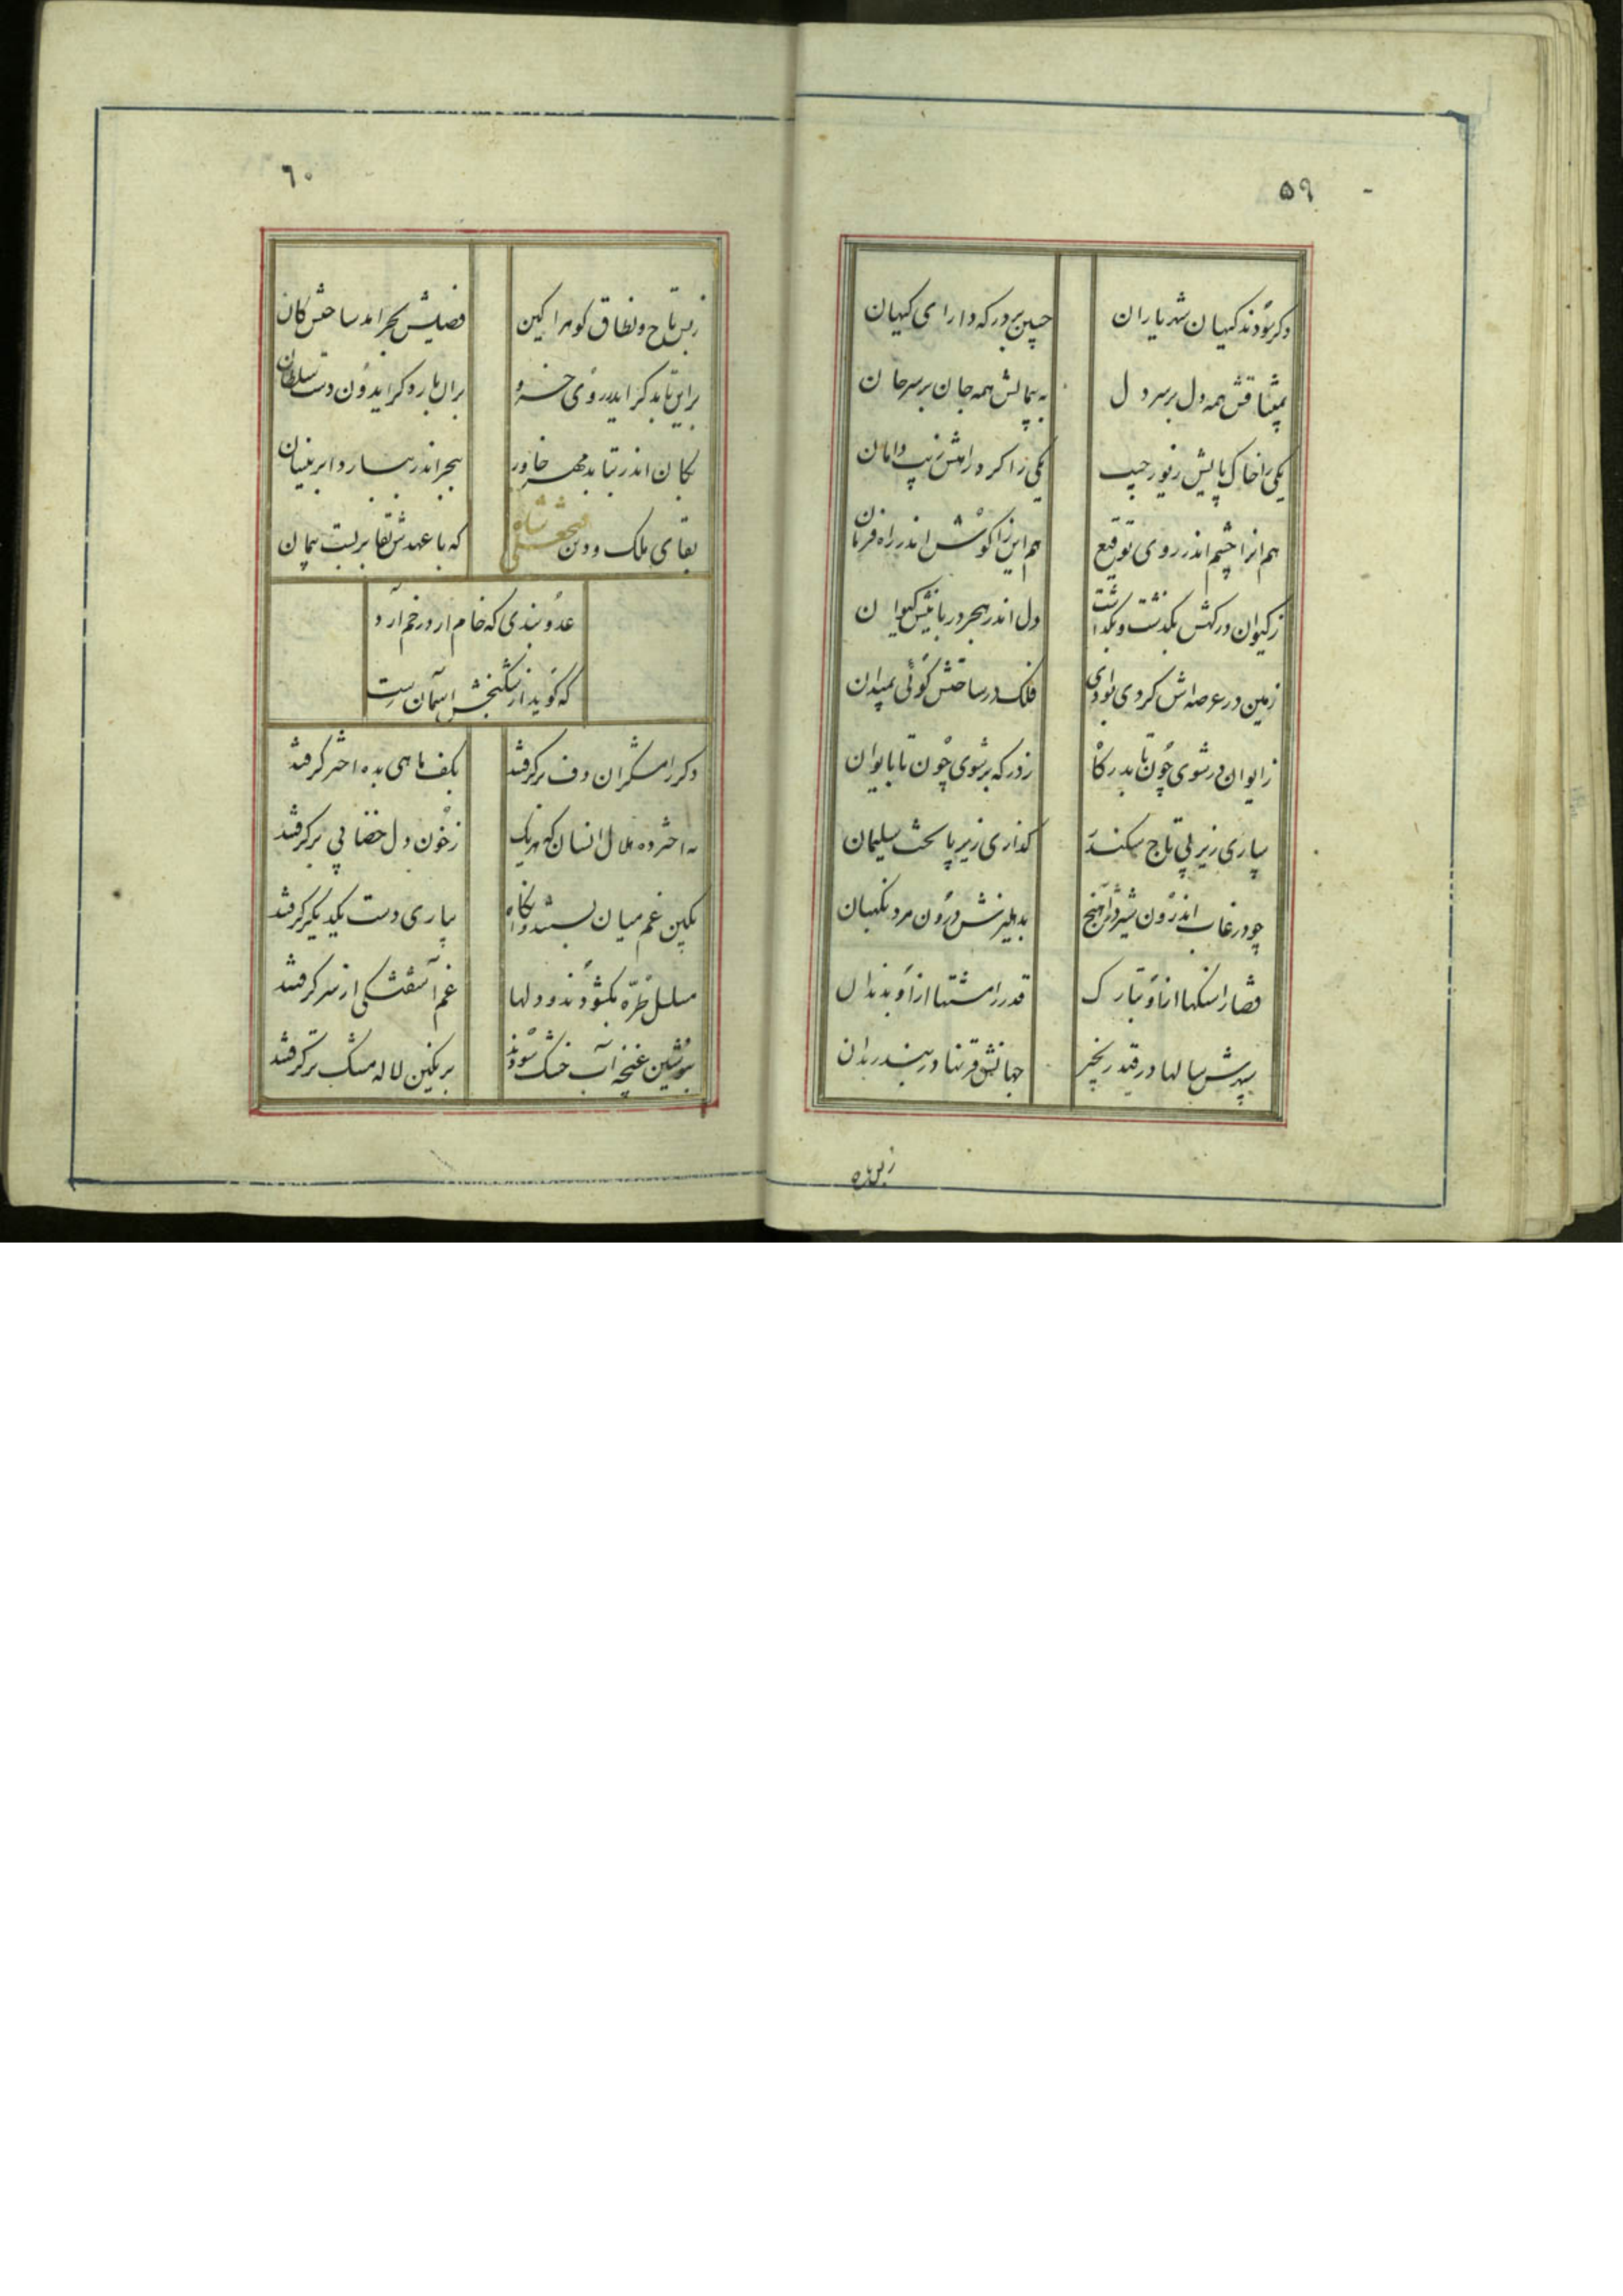 ۵۹
دکر سودند کیهان شهریاران جبین بر درکه دارای کیهان
بمیثاقش همه دل بر سر دل به پیمانش همه جان بر سر جان
یکی را خاک پایش زیور جیب یکی را کرد راهش زیب دامان
هم انرا چشم اندر روی توقیع هم این را کوش اندر راه فرمان
ز کیوان درکهش بکذشت و بکذاشت دل اندر هجر دربانیش کیوان
زمین در عرصه‌اش کردی بوادی فلک در ساحتش کوئی بمیدان
ز ایوان در شوی چون تا بدرکاه ز درکه بر شوی چون تا بایوان
سپاری زیر پی تاج سکندر کذاری زیر پا تخت سلیمان
چو در غاب اندرون شیر دژآهنج بدهلیزش درون مرد نکهبان
قضا را سنکها از او بتارک قدر را مشتها از او بدندان
سپهرش سالها در قید زنجیر جهانش قرنها در بند زندان
زبس تاج
٦٠
زبس تاج و نطاق کوهر اکین فصیلش بحر امد ساحتش کان
براین تابد کر ایدر روی خسرو بران بارد کر ایدون دست سلطان
بکان اندر نتابد مهر خاور ببحر اندر نبارد ابر نیسان
بقای ملک و دین فتحعلی شاه که با عهدش بقا بربست پیمان
عدو بندی که خام ار در خم آرد
که کوید از شکنجش اسمان رست
دکر رامشکران دف برکرفتند بکف ماهی بده اختر کرفتند
ده هلال انسان که هر یک ز خون دل خضابی برکرفتند
بکین غم میان بستند وانکاه بیاری دست یکدیکر کرفتند
مسلسل طره بکشودند و دلها غم آشفتکی از سر کرفتند
بنوشین غنچه آب خشک سودند برنکین لاله مشک تر کرفتند